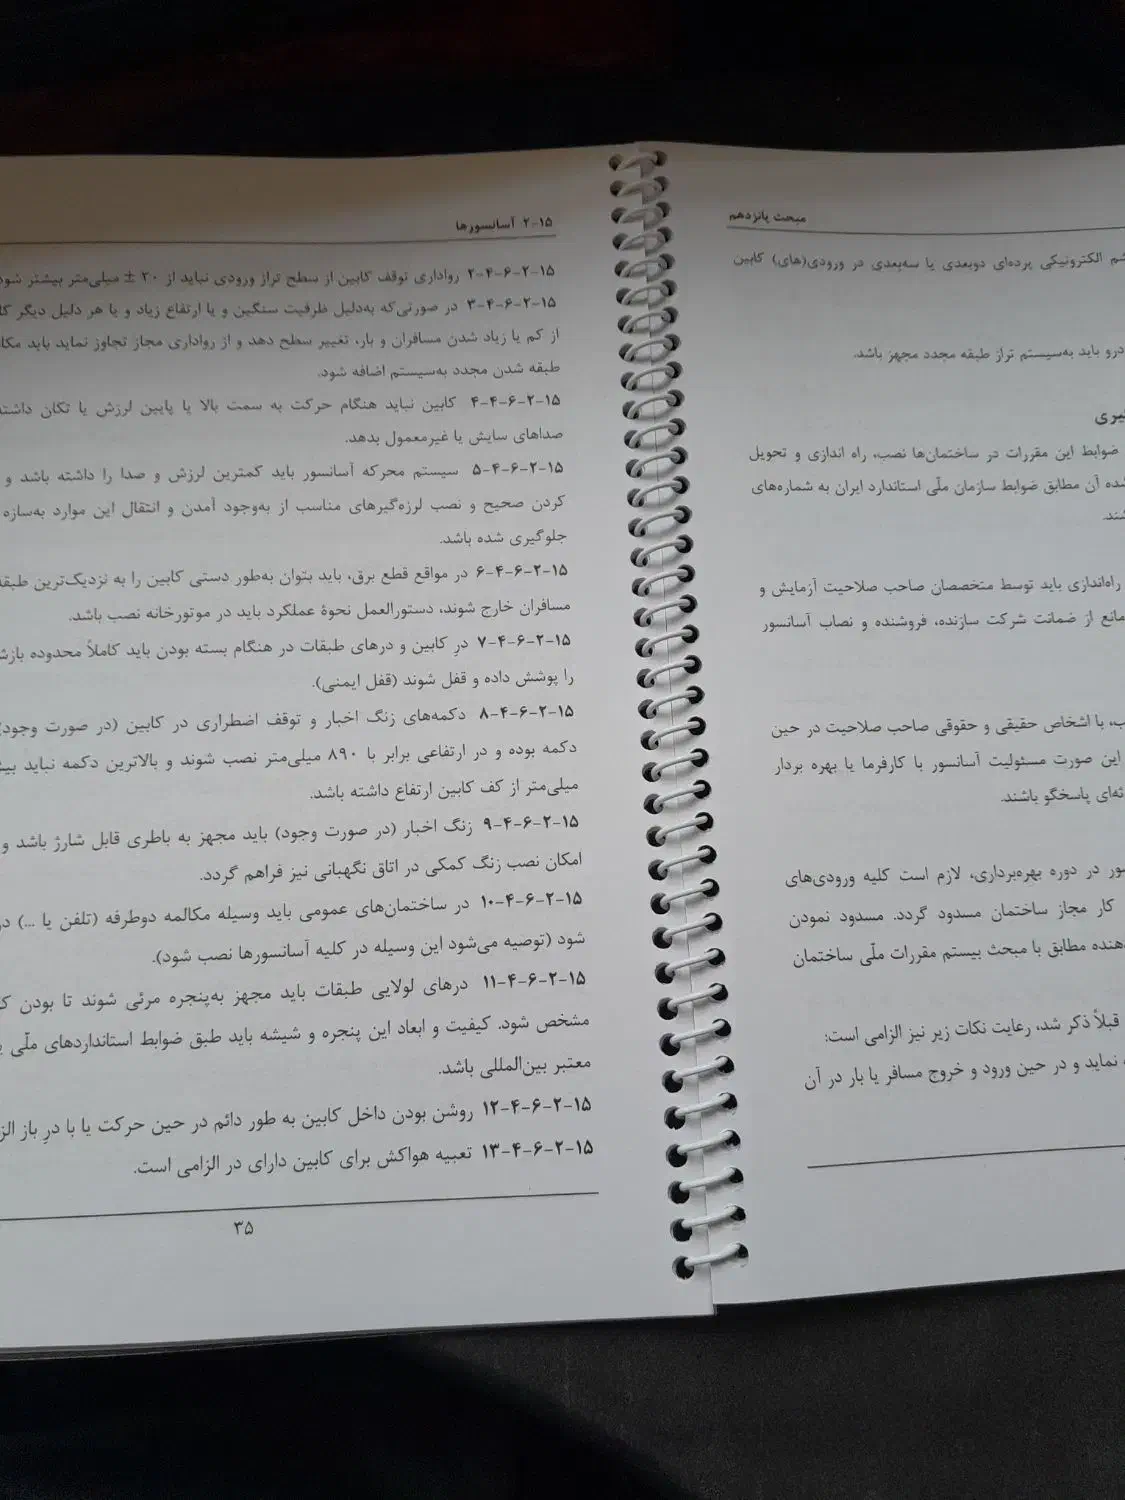 مبحث پانزدهم
شم الکترونیکی پرده‌ای دوبعدی یا سه‌بعدی در ورودی(های) کابین
درو باید به‌سیستم تراز طبقه مجدد مجهز باشد.
ضوابط این مقررات در ساختمان‌ها نصب، راه اندازی و تحویل
شده آن مطابق ضوابط سازمان ملّی استاندارد ایران به شماره‌های
راه‌اندازی باید توسط متخصصان صاحب صلاحیت آزمایش و
مانع از ضمانت شرکت سازنده، فروشنده و نصاب آسانسور
ب، با اشخاص حقیقی و حقوقی صاحب صلاحیت در حین
این صورت مسئولیت آسانسور با کارفرما یا بهره بردار
ئه‌ای پاسخگو باشند.
ور در دوره بهره‌برداری، لازم است کلیه ورودی‌های
کار مجاز ساختمان مسدود گردد. مسدود نمودن
هنده مطابق با مبحث بیستم مقررات ملّی ساختمان
قبلاً ذکر شد، رعایت نکات زیر نیز الزامی است:
نماید و در حین ورود و خروج مسافر یا بار در آن
۱۵-۲ آسانسورها
۱۵-۲-۶-۴-۲ رواداری توقف کابین از سطح تراز ورودی نباید از ۲۰ ± میلی‌متر بیشتر شود
۱۵-۲-۶-۴-۳ در صورتی‌که به‌دلیل ظرفیت سنگین و یا ارتفاع زیاد و یا هر دلیل دیگر
از کم یا زیاد شدن مسافران و بار، تغییر سطح دهد و از رواداری مجاز تجاوز نماید باید
طبقه شدن مجدد به‌سیستم اضافه شود.
۱۵-۲-۶-۴-۴ کابین نباید هنگام حرکت به سمت بالا یا پایین لرزش یا تکان
صداهای سایش یا غیرمعمول بدهد.
۱۵-۲-۶-۴-۵ سیستم محرکه آسانسور باید کمترین لرزش و صدا را داشته باشد و
کردن صحیح و نصب لرزه‌گیرهای مناسب از به‌وجود آمدن و انتقال این موارد به‌سازه
جلوگیری شده باشد.
۱۵-۲-۶-۴-۶ در مواقع قطع برق، باید بتوان به‌طور دستی کابین را به نزدیک‌ترین طبقه
مسافران خارج شوند، دستورالعمل نحوهٔ عملکرد باید در موتورخانه نصب باشد.
۱۵-۲-۶-۴-۷ درِ کابین و درهای طبقات در هنگام بسته بودن باید کاملاً محدوده
را پوشش داده و قفل شوند (قفل ایمنی).
۱۵-۲-۶-۴-۸ دکمه‌های زنگ اخبار و توقف اضطراری در کابین (در صورت وجود)
دکمه بوده و در ارتفاعی برابر با ۸۹۰ میلی‌متر نصب شوند و بالاترین دکمه نباید
میلی‌متر از کف کابین ارتفاع داشته باشد.
۱۵-۲-۶-۴-۹ زنگ اخبار (در صورت وجود) باید مجهز به باطری قابل شارژ باشد و
امکان نصب زنگ کمکی در اتاق نگهبانی نیز فراهم گردد.
۱۵-۲-۶-۴-۱۰ در ساختمان‌های عمومی باید وسیله مکالمه دوطرفه (تلفن یا ...)
شود (توصیه می‌شود این وسیله در کلیه آسانسورها نصب شود).
۱۵-۲-۶-۴-۱۱ درهای لولایی طبقات باید مجهز به‌پنجره مرئی شوند تا بودن
مشخص شود. کیفیت و ابعاد این پنجره و شیشه باید طبق ضوابط استانداردهای ملّی
معتبر بین‌المللی باشد.
۱۵-۲-۶-۴-۱۲ روشن بودن داخل کابین به طور دائم در حین حرکت یا با درِ باز
۱۵-۲-۶-۴-۱۳ تعبیه هواکش برای کابین دارای در الزامی است.
۳۵